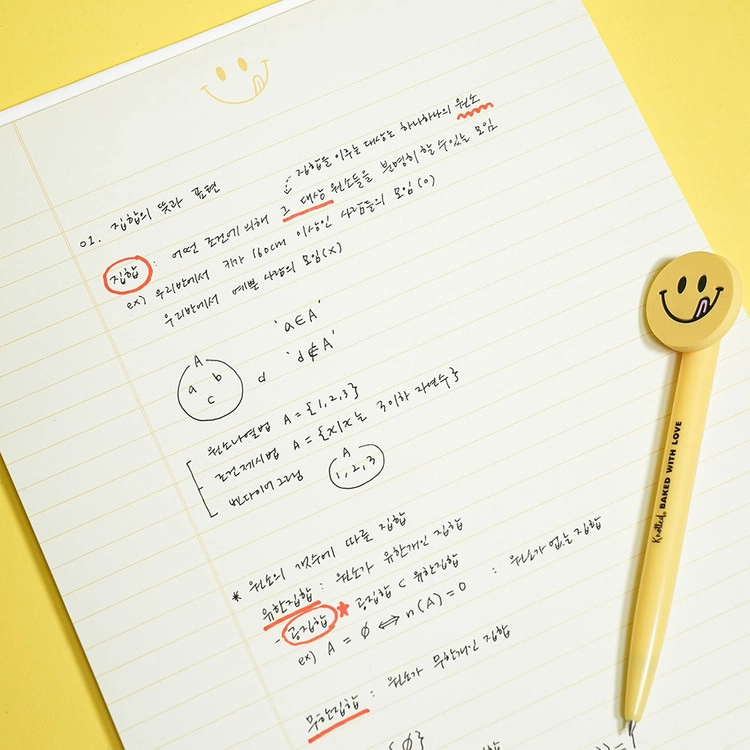 집합을 이루는 대상는 하나하나의 원소
01. 집합의 뜻과 표현
집합 : 어떤 조건에 의해 그 대상 원소들을 분명히 할 수 있는 모임
ex) 우리반에서 키가 160cm 이상인 사람들의 모임(o)
우리반에서 예쁜 사람의 모임(x)
'a∈A'
'd∉A'
A
a b
c
d
원소나열법 A = {1,2,3}
조건제시법 A = {x|x는 3이하 자연수}
벤다이어그램
A
1, 2, 3
* 원소의 갯수에 따른 집합
유한집합 : 원소가 유한개인 집합
- 공집합 * 공집합 ⊂ 유한집합
ex) A = ∅ ⇔ n(A) = 0 : 원소가 없는 집합
무한집합 : 원소가 무한개인 집합
{∅}
Knotted. BAKED WITH LOVE